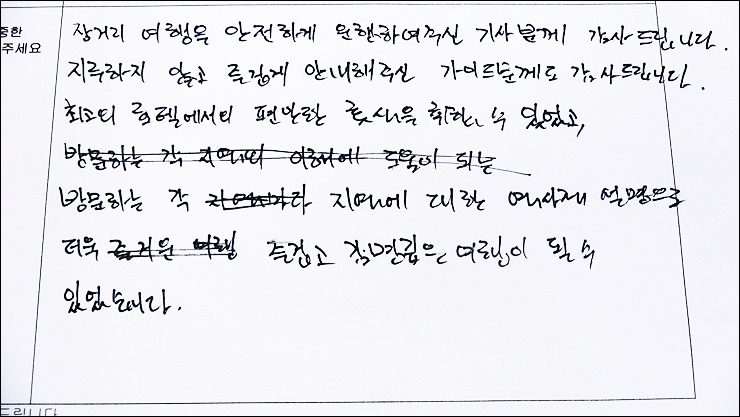 중한
주세요
장거리 여행을 안전하게 운행하여주신 기사님께 감사드립니다.
지루하지 않고 즐겁게 안내해주신 가이드님께도 감사드립니다.
최고의 호텔에서의 편안한 휴식을 취할 수 있었고,
방문하는 각 지역의 이해에 도움이 되는
방문하는 각 지역에 대한 역사적 설명으로
더욱 즐거운 여행 즐겁고 감명깊은 여행이 될 수
있었습니다.
드립니다